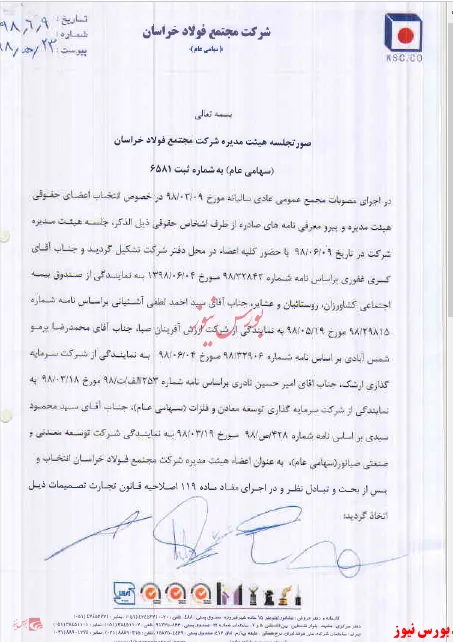 شرکت مجتمع فولاد خراسان
(سهامی عام)
KSC.CO
تاریخ: ۹۸,۶,۹
شماره:
پیوست:
بسمه تعالی
صورتجلسه هیئت مدیره شرکت مجتمع فولاد خراسان
(سهامی عام) به شماره ثبت ۶۵۸۱
در اجرای مصوبات مجمع عمومی عادی سالیانه مورخ ۹۸/۰۳/۰۹ در خصوص انتخاب اعضای حقوقی
هیئت مدیره و پیرو معرفی نامه های صادره از طرف اشخاص حقوقی ذیل الذکر، جلسه هیئت مدیره
شرکت در تاریخ ۹۸/۰۶/۰۹ با حضور کلیه اعضاء در محل دفتر شرکت تشکیل گردید و جناب آقای
کسری غفوری براساس نامه شماره ۹۸/۳۲۸۴۲ مورخ ۱۳۹۸/۰۶/۰۴ به نمایندگی از صندوق بیمه
اجتماعی کشاورزان، روستائیان و عشایر، جناب آقای سید احمد لطفی آشتیانی براساس نامه شماره
۹۸/۲۹۸۱۵ مورخ ۹۸/۰۵/۱۹ به نمایندگی از شرکت ارزش آفرینان صبا، جناب آقای محمدرضا یرمو
شمس آبادی بر اساس نامه شماره ۹۸/۳۲۹۰۶ مورخ ۹۸/۰۶/۰۴ به نمایندگی از شرکت سرمایه
گذاری ارشک، جناب آقای امیر حسین نادری براساس نامه شماره ۲۵۳الف/ت/۹۸ مورخ ۹۸/۰۳/۱۸ به
نمایندگی از شرکت سرمایه گذاری توسعه معادن و فلزات (سهامی عام)، جناب آقای سید محمود
سیدی بر اساس نامه شماره ۴۲۸/ص/۹۸ مورخ ۹۸/۰۳/۱۹ به نمایندگی شرکت توسعه معدنی و
صنعتی صبانور(سهامی عام)، به عنوان اعضاء هیئت مدیره شرکت مجتمع فولاد خراسان انتخاب و
پس از بحث و تبادل نظر و در اجرای مفاد ماده ۱۱۹ اصلاحیه قانون تجارت تصمیمات ذیل
اتخاذ گردید:
بورس نیوز
بورس نیوز